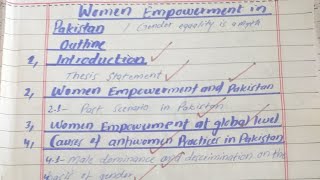 Women Empowerment in
Pakistan / Gender equality is a myth
Outline
1, Introduction
Thesis Statement
2, Women Empowerment and Pakistan
2.1- Past Scenario in Pakistan
3, Women Empowerment at global level
4, Causes of antiwomen Practices in Pakistan
4.1- Male dominance and discrimination on the
basis of gender